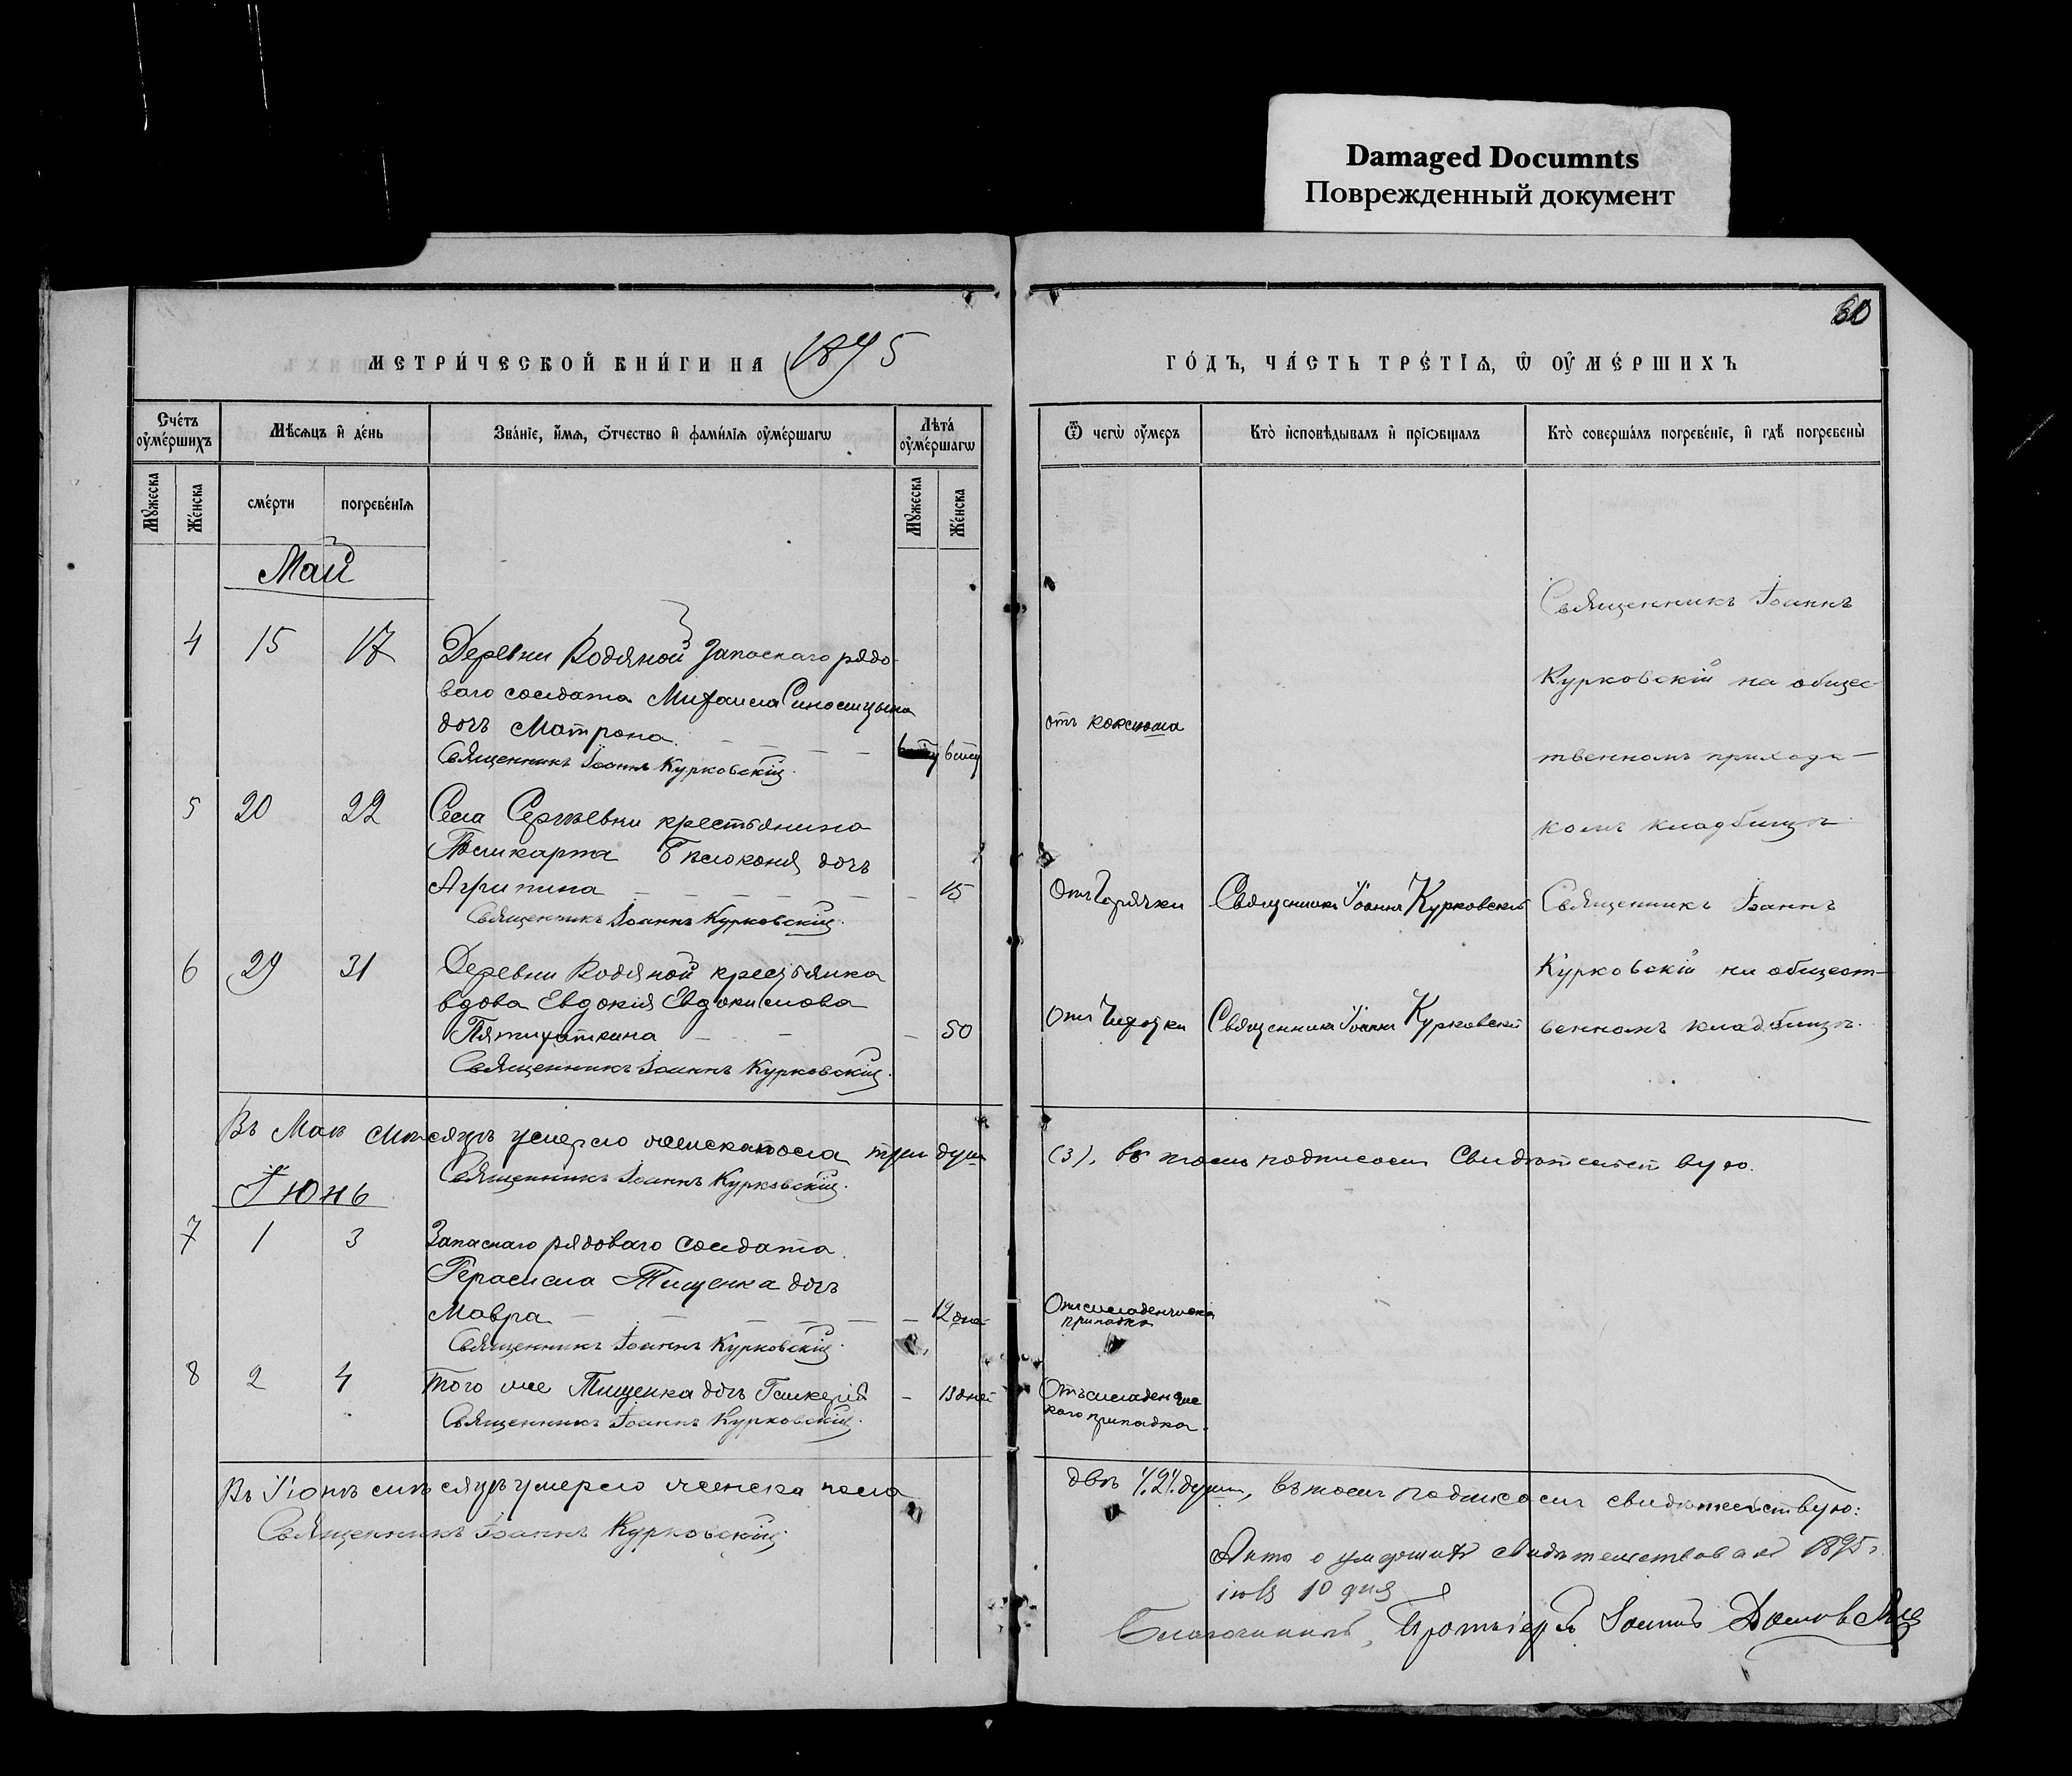 Damaged Documnts
Поврежденный документ
30
МЕТРИ́ЧЕСКОЙ КНИ́ГИ НА 1895
ГО́ДЪ, ЧА́СТЬ ТРЕ́ТІѦ, Ѡ҆ ОУ҆МЕ́РШИХЪ
Сче́тъ оу҆ме́ршихъ
Мѣ́сѧцъ и҆ де́нь
Зва́нїе, и҆́мѧ, ѻ҆́тчество и҆ фамі́лїѧ оу҆ме́ршагѡ
Лѣта̀ оу҆ме́ршагѡ
Ѿ чегѡ̀ оу҆́меръ
Кто̀ и҆сповѣ́дывалъ и҆ прїѡбща́лъ
Кто̀ соверша́лъ погребе́нїе, и҆ гдѣ̀ погребены̀
Мꙋ́жеска
Же́нска
сме́рти
погребе́нїѧ
Мꙋ́жеска
Же́нска
Май
4 15 17 Деревни Водяной запаснаго рядо-
ваго солдата Михаила Синолицына
дочь Матрона
Священникъ Іоаннъ Курковскій
отъ коклюша
Священникъ Іоаннъ
Курковскій на общес-
твенномъ приход-
комъ кладбищѣ
5 20 22 Села Сергѣевки крестьянина
Поликарпа Бѣлоконя дочь
Агрипина 15
Священникъ Іоаннъ Курковскій
Отъ Горячки
Священникъ Іоаннъ Курковскій
Священникъ Іоаннъ
Курковскій на общест-
венномъ кладбищѣ.
6 29 31 Деревни Водяной крестьянка
вдова Евдокія Евдокимова
Пятихаткина 50
Священникъ Іоаннъ Курковскій
Отъ Чахотки
Священникъ Іоаннъ Курковскій
Въ Маѣ мѣсяцѣ умерло женска пола три души
(3), въ томъ подписомъ Свидѣтельствую.
Священникъ Іоаннъ Курковскій
Іюнь
7 1 3 Запаснаго рядоваго солдата
Герасима Тищенка дочь
Мавра 12 дней
Священникъ Іоаннъ Курковскій
Отъ младенческа
припадка
8 2 4 Того же Тищенка дочь Гликерія 13 дней
Священникъ Іоаннъ Курковскій
Отъ младенчес
каго припадка
Въ Іюнѣ мѣсяцѣ умерло женска пола
двѣ /2/ души, въ томъ подписомъ свидѣтельствую:
Священникъ Іоаннъ Курковскій
о умершихъ свидѣтельствовалъ 1895 г.
10 дня
Благочинный, Протоіерей Іоаннъ